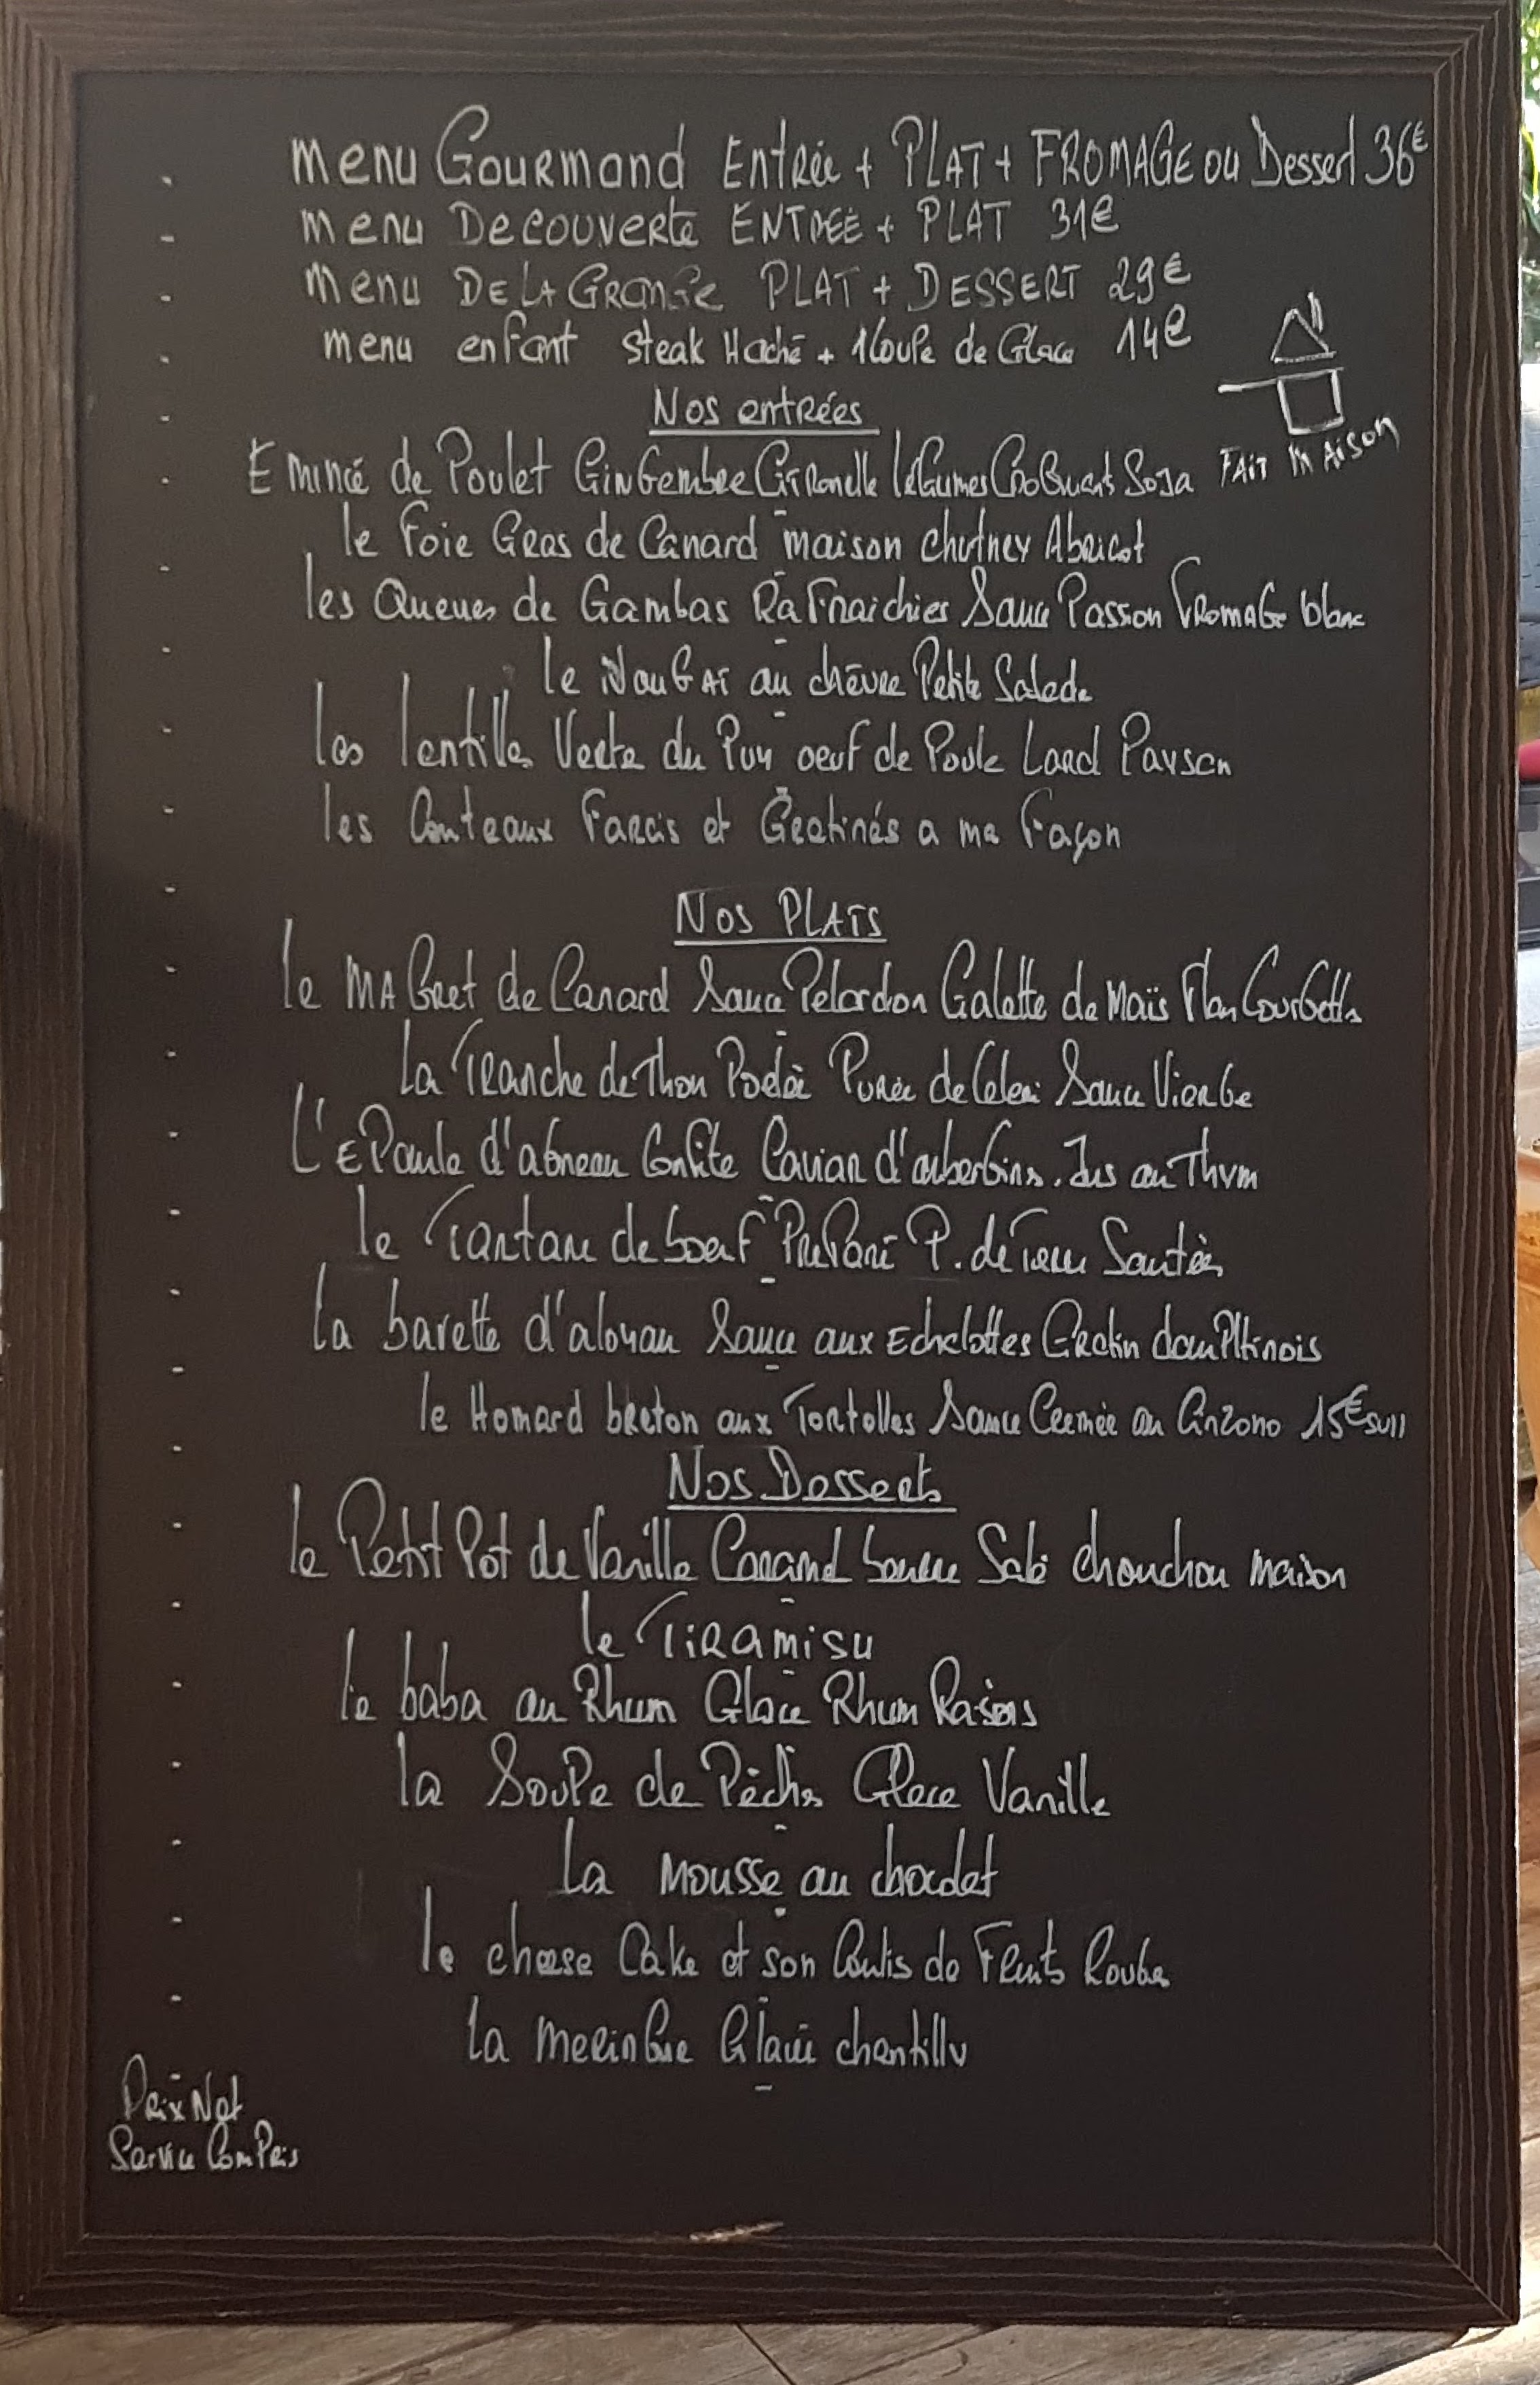 menu Gourmand Entrée + PLAT + FROMAGE ou Dessert 36€
menu Decouverte ENTREE + PLAT 31€
menu DE LA GRANGE PLAT + DESSERT 29€
menu enfant steak Haché + 1 Coupe de Glace 14€
Nos entrées
Emincé de Poulet Gingembre Citronelle légumes Croquants Soja
FAIT MAISON
le Foie Gras de Canard maison chutney Abricot
les Queues de Gambas Rafraichies Sauce Passion Fromage blanc
le Nougat au chèvre Petite Salade
les lentilles Verte du Puy oeuf de Poule Lard Paysan
les Couteaux Farcis et Gratinés a ma Façon
Nos PLATS
le MAGret de Canard Sauce Pelardon Galette de Maïs Flan Courgette
La Tranche de Thon Poêlé Purée de Celeri Sauce Vierge
L'EPaule d'agneau Confite Caviar d'aubergine. Jus au Thym
le Tartare de boeuf PrePare P. de Terre Sautées
la bavette d'aloyau Sauce aux Echalottes Gratin dauPhinois
le Homard breton aux Tortelles Sauce Cremée au 15€ supp
Nos Desserts
le Petit Pot de Vanille Caramel beurre Salé chouchou maison
le Tiramisu
le baba au Rhum Glace Rhum Raisins
la Soupe de Pêches Glace Vanille
La mousse au chocolat
le cheese Cake et son Coulis de Fruits Rouges
La meringue Glacée chantilly
Prix Net
Service Compris